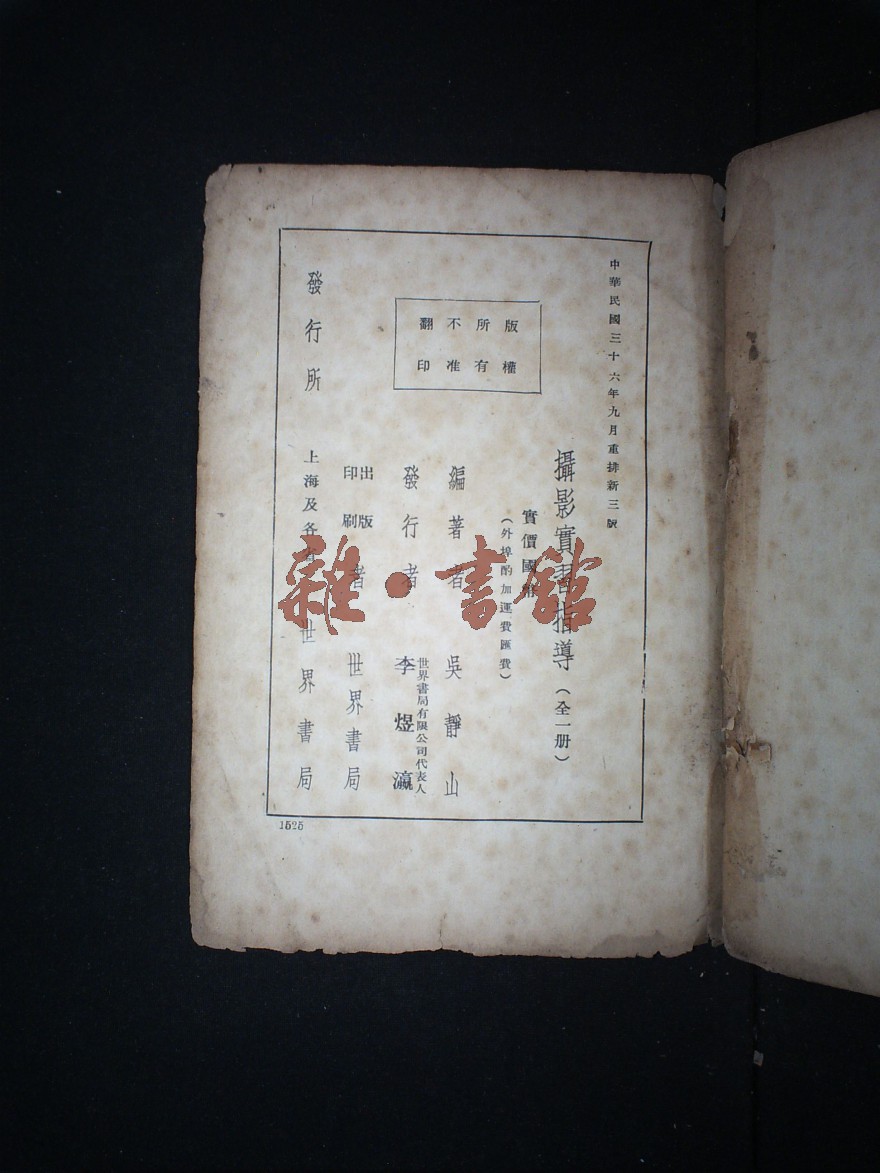 中華民國三十六年九月重排新三版
攝影實習指導（全一册）
實價國幣
（外埠酌加運費匯費）
版權
所有
不准
翻印
編著者 吳靜山
發行者 世界書局有限公司代表人 李煜瀛
出版
印刷者 世界書局
發行所 上海及各省 世界書局
1525
雜·書館